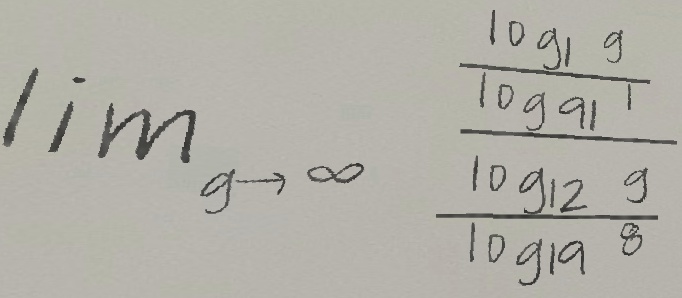 lim g→∞
log₁ g
log₉₁ 1
log₁₂ g
log₁₉ 8